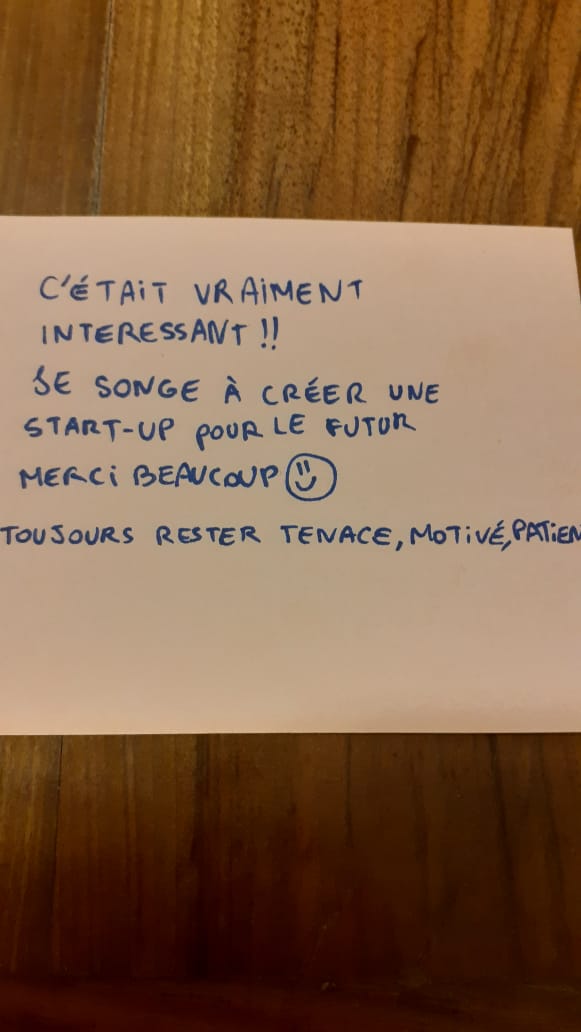 C'ÉTAIT VRAIMENT
INTERESSANT !!
JE SONGE À CRÉER UNE
START-UP POUR LE FUTUR
MERCI BEAUCOUP
TOUJOURS RESTER TENACE, MOTIVÉ, PATIEN